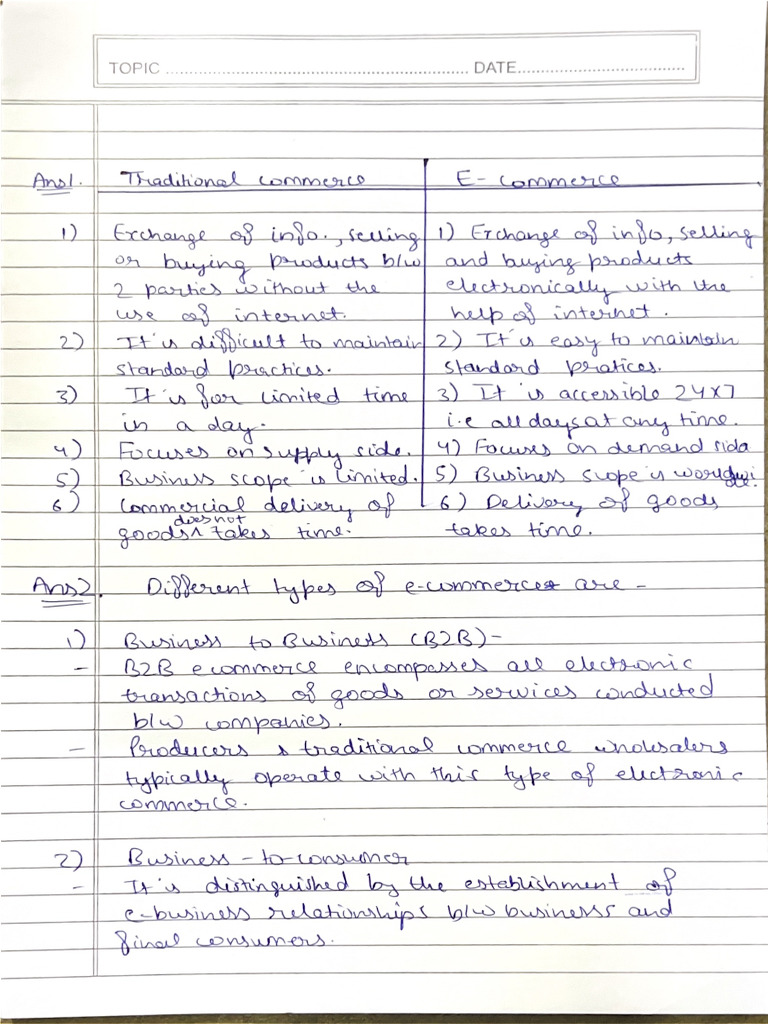 TOPIC ........................ DATE........................
Ans1. Traditional commerce E- commerce
1) Exchange of info., selling 1) Exchange of info, selling
or buying products b/w and buying products
2 parties without the electronically with the
use of internet. help of internet.
2) It is difficult to maintain 2) It is easy to maintain
standard practices. standard pratices.
3) It is for limited time 3) It is accessible 24x7
in a day. i.e all days at any time.
4) Focuses on supply side. 4) Focuses on demand side
5) Business scope is limited. 5) Business scope is worldwide.
6) Commercial delivery of 6) Delivery of goods
does not
goods ^ takes time. takes time.
Ans2. Different types of e-commerce are -
1) Business to Business (B2B) -
- B2B ecommerce encompasses all electronic
transactions of goods or services conducted
b/w companies.
- Producers & traditional commerce wholesalers
typically operate with this type of electronic
commerce.
2) Business - to - consumer
- It is distinguished by the establishment of
e-business relationships b/w business and
final consumers.